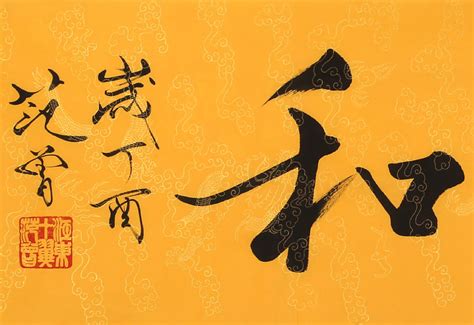 和
歲丁酉
范曾
江東
十翼
范曾